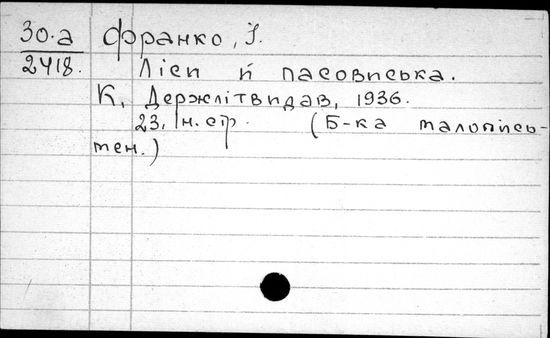 30.а Франко, І.
2418. Ліси й пасовиська.
К, Держлітвидав, 1936.
23, н. стр. (Б-ка малопись-
мен.)